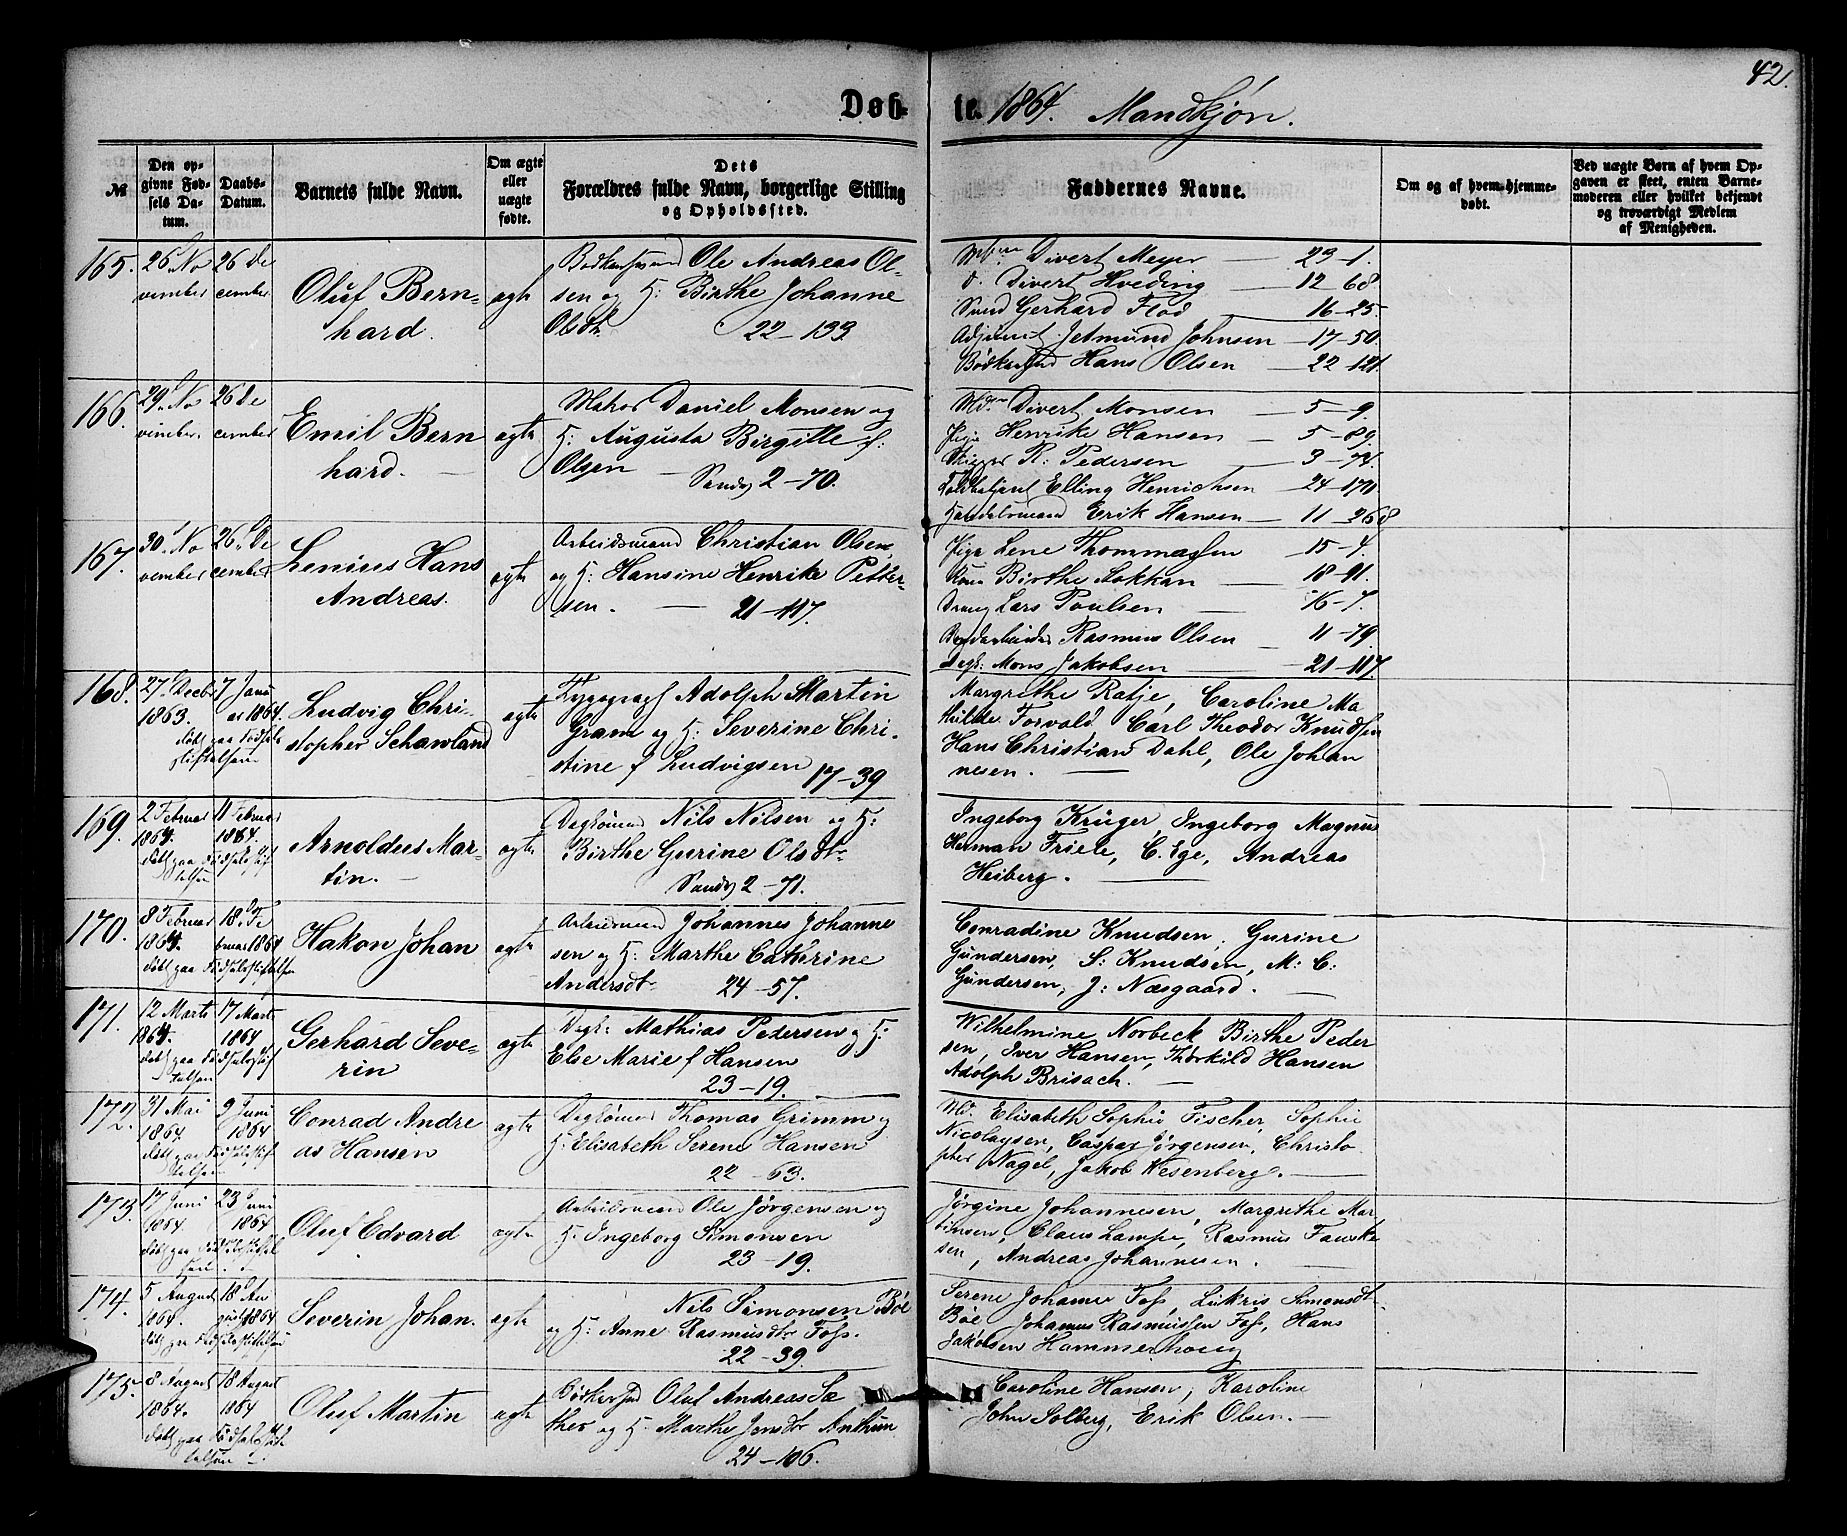 42.
Døb- te. 1864. Mandkjøn.
№
Den op-
givne Fød-
sels Da-
tum.
Daabs-
Datum.
Barnets fulde Navn.
Om ægte
eller
uægte
fødte.
Dets
Forældres fulde Navn, borgerlige Stilling
og Opholdssted.
Faddernes Navne.
Om og af hvem hjemme-
døbt.
Ved uægte Børn af hvem Op-
gaven er skeet, enten Barne-
moderen eller hvilket bekjendt
og troværdigt Medlem
af Menigheden.
165.
26 No
vember
26 De
cember
Oluf Bern-
hard.
ægte
Ole Andreas Ol-
sen og H: Birthe Johanne
Olsdt. 22-133
Divert Meyer 23-1.
Divert Hveding 12-68
Gerhard Flod 16-25.
Adjunct Jetmund Johnsen 17-50.
Hans Olsen 22-121.
166.
29 No
vember.
26 De
cember
Emil Bern
hard.
ægte
Matros Daniel Monsen og
H: Augusta Birgitte f:
Olsen Sandv 2-70.
Md. Divert Monsen 5-9.
Pige Henrike Hansen 5-89.
R: Pedersen 3-74.
Elling Henrichsen 24-170
Handelsmand Erik Hansen 11-268
167.
30 No
vember
26 De
cember
Lenius Hans
Andreas.
ægte
Arbeidsmand Christian Olsen
og H: Hansine Henrike Petter-
sen. 21-117.
Pige Lene Thommassen 15-4.
Kone Birthe Stokkan 18-91.
Dreng Lars Poulsen 16-7.
Rasmus Olsen 11-79
Dagk: Mons Jakobsen 21-117.
168.
27 Decbr
1863.
døbt paa Fødsels
stiftelsen
7 Janu
ar 1864.
Ludvig Chri-
stopher Schawland
ægte
Typograf Adolph Martin
Gram og H: Severine Chri-
stine f Ludvigsen 17-39
Margrethe Ratje, Caroline Ma
thilde Forvald Carl Theodor Knudsen
Hans Christian Dahl, Ole Johan
nesen.
169.
2 Februar
1864.
11 Februar
1864
døbt paa Fødselsstif
telsen
Arnoldus Mar-
tin.
ægte
Dagkmand Nils Nilsen og H:
Birthe Gurine Olsdt
Sandv 2-71.
Ingeborg Krüger, Ingeborg Magnus
Herman Friele, C. Ege, Andreas
Heiberg.
170.
8 Februar
1864.
18 Fe
bruar 1864
døbt paa Fødselsstiftelsen
Hakon Johan
ægte
Arbeidsmand Johannes Johanne
sen og H: Marthe Cathrine
Andersdt 24-57.
Conradine Knudsen, Gurine
Gundersen, S: Knudsen, M: C:
Gundersen, J: Næsgaard.
171.
12 Marts
1864.
17 Marts
1864
døbt paa Fødselsstif
telsen
Gerhard Seve-
rin
ægte
Dagk: Mathias Pedersen og H:
Else Marie f Hansen
23-19.
Wilhelmine Norbeck Birthe Peder
sen, Iver Hansen, Thorkild Hansen
Adolph Brisach.
172.
31 Mai
1864.
9 Juni
1864
døbt paa Fødselsstif
telsen
Conrad Andre
as Hansen
ægte
Dagkmand Thomas Grimm og
H: Elisabeth Serene Hansen
22-63.
Md. Elisabeth Sophie Fischer, Sophie
Nicolaysen, Caspar Jørgensen, Christo
pher Nagel, Jakob Wesenberg.
173.
17 Juni
1864
23 Juni
1864
døbt paa Fødselsstiftel
sen
Oluf Edvard
ægte
Arbeidsmand Ole Jørgensen og
H: Ingeborg Simonsen
23-19.
Jørgine Johannesen, Margrethe Mar
tinsen, Claus Lampe, Rasmus Fauske
sen, Andreas Johannesen.
174.
5 August
1864.
18 Au
gust 1864
døbt paa Fødselsstiftelsen
Severin Johan.
ægte
Nils Simonsen Bøe
og H: Anne Rasmusdtr Foss.
22-39.
Serene Johanne Foss, Lukris Simonsdt
Bøe, Johannes Rasmussen Foss, Hans
Jakobsen Hammerhoug
175.
8 August
1864.
18 August
1864
døbt paa Fødselsstif
telsen
Oluf Martin
ægte
Oluf Andreas Sæ
ther og H: Marthe Jensdtr Anthun
24-106.
Caroline Hansen, Karoline
John Solberg, Erik Olsen.